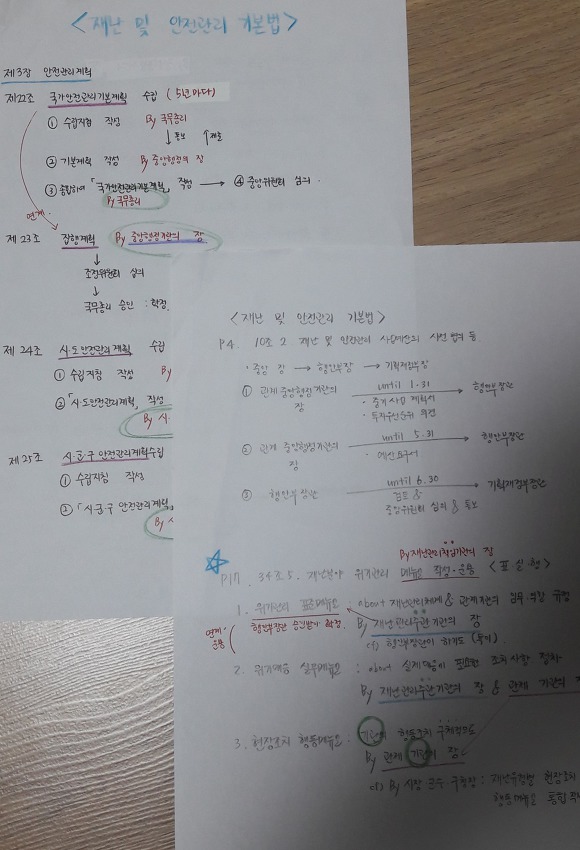 <재난 및 안전관리 기본법>
제3장 안전관리계획
제22조 국가안전관리기본계획 수립 (5년마다)
① 수립지침 작성 By 국무총리
↓통보 ↑제출
② 기본계획 작성 By 중앙행정의 장
③ 종합하여 「국가안전관리기본계획」 작성 → ④ 중앙위원회 심의.
By 국무총리
연계.
제 23조 집행계획 By 중앙행정기관의 장
↓
조정위원회 심의
↓
국무총리 승인 : 확정
제 24조 시·도안전관리계획 수립
① 수립지침 작성 By
② 「시·도안전관리계획」 작성
By 시·
제 25조 시·군·구 안전관리계획수립
① 수립지침 작성
② 「시군구 안전관리계획」
By
<재난 및 안전관리 기본법>
P4. 10조 2. 재난 및 안전관리 사업예산의 사전 협의 등
· 중앙 장 → 행안부장 → 기획재정부장
① 관계 중앙행정기관의 장 until 1.31 → 행안부장관
· 중기사업 계획서
· 투자우선순위 의견
② 관계 중앙행정기관의 장 until 5.31 → 행안부장관
· 예산요구서
③ 행안부장관 until 6.30 → 기획재정부장관
검토 &
중앙위원회 심의 & 통보
By 재난관리책임기관의 장
P17. 34조 5. 재난분야 위기관리 매뉴얼 작성·운용 <표·실·행>
1. 위기관리 표준매뉴얼 : about 재난관리체계 & 관계기관의 임무·역할 규정
행안부장관 승인받기·확정. By 재난관리주관기관의 장
연계·운용
cf) 행안부장관이 하기도
2. 위기대응 실무매뉴얼 : about 실제대응에 필요한 조치사항 절차
By 재난관리주관기관의 장 & 관계 기관의
3. 현장조치 행동매뉴얼 : 기관의 행동조치 구체적으로
By 관계 기관의 장
cf) By 시장 군수 구청장 : 재난유형별 현장조치
행동매뉴얼 통합